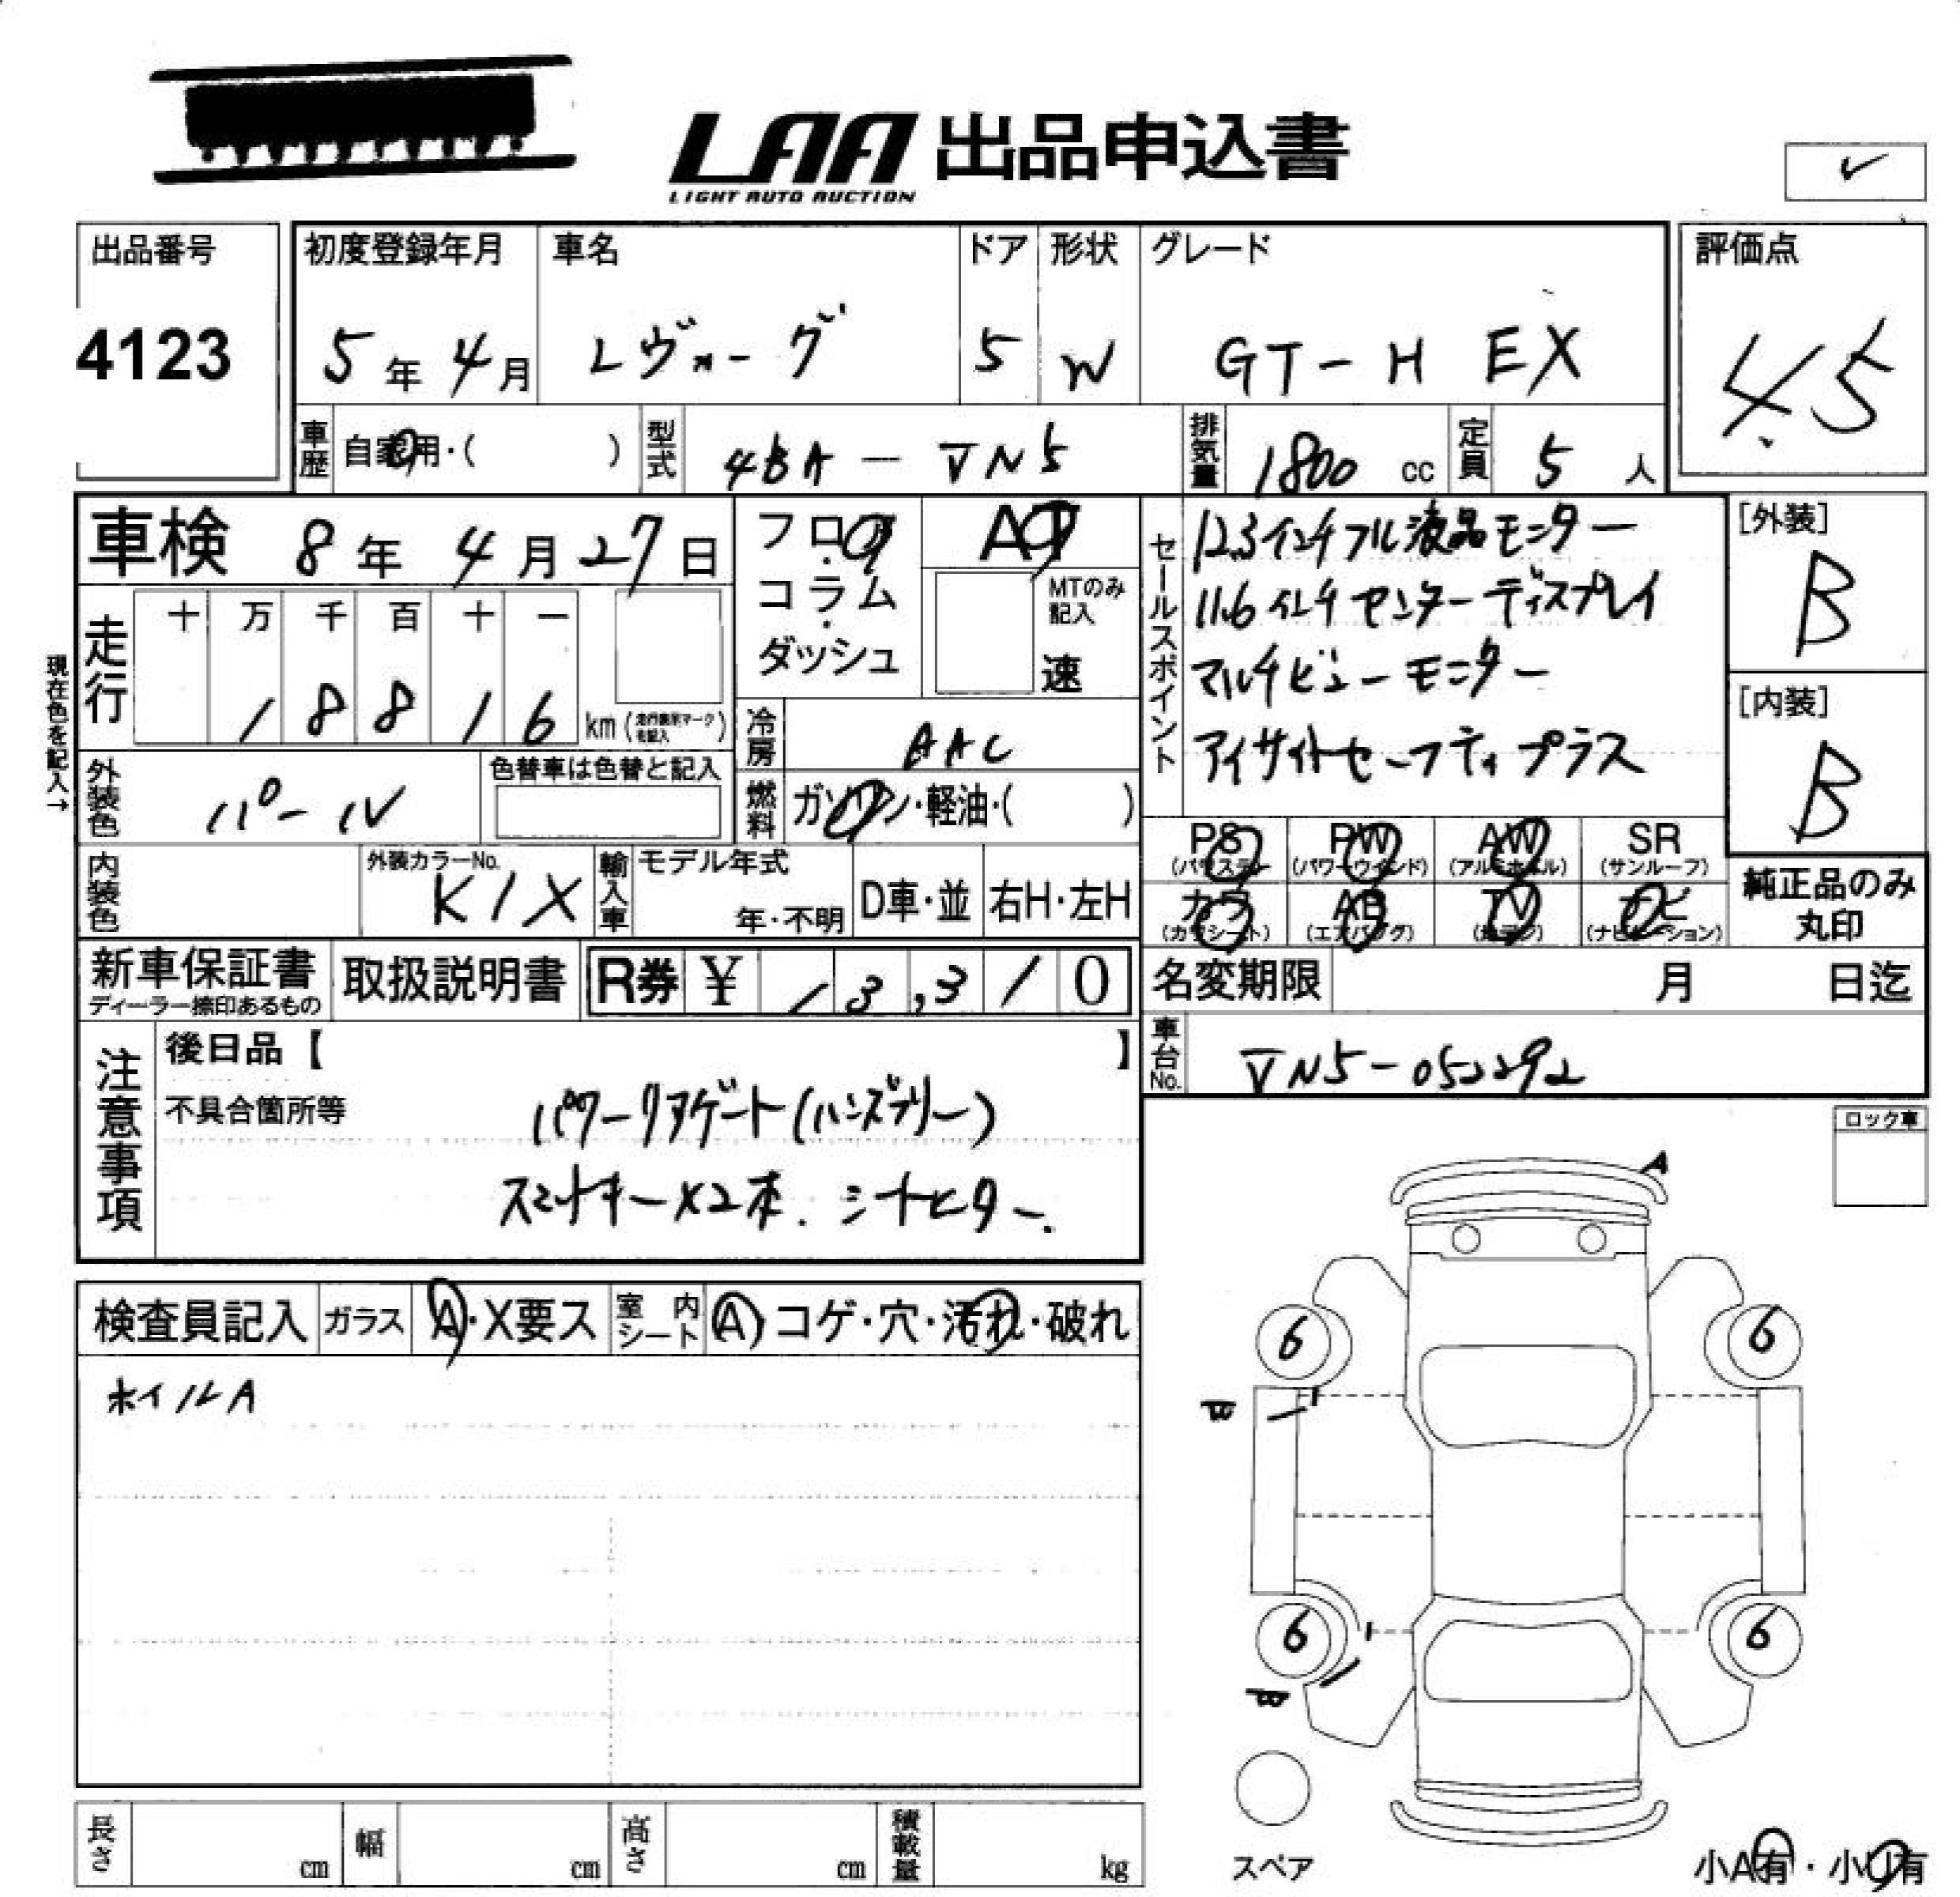 LAA 出品申込書
LIGHT AUTO AUCTION
出品番号
4123
初度登録年月
5年4月
車名
レヴォーグ
ドア
5
形状
W
グレード
GT-H EX
評価点
4.5
車歴
自家用・( )
型式
4BA-VN5
排気量
1800 cc
定員
5人
車検 8年4月27日
フロア・コラム・ダッシュ
AT
MTのみ記入
速
セールスポイント
12.3インチフル液晶モニター
11.6インチセンターディスプレイ
マルチビューモニター
アイサイトセーフティプラス
[外装]
B
[内装]
B
現在色を記入→
走行
十 万 千 百 十 一
1 8 8 1 6 km (走行表示マークを記入)
冷房
AAC
外装色
パール
色替車は色替と記入
燃料
ガソリン・軽油・( )
内装色
外装カラーNo.
K1X
輸入車
モデル年式
年・不明
D車・並
右H・左H
PS
(パワステ)
PW
(パワーウィンド)
AW
(アルミホイル)
SR
(サンルーフ)
カワ
(カワシート)
AB
(エアバッグ)
TV
(地デジ)
ナビ
(ナビゲーション)
純正品のみ
丸印
新車保証書
ディーラー捺印あるもの
取扱説明書
R券 ¥ 13,310
名変期限 月 日迄
車台No.
VN5-052292
注意事項
後日品【 】
不具合箇所等
パワーリアゲート(ハンズフリー)
スマートキー×2本. シートヒーター.
ロック車
A
検査員記入
ガラス
A・X要ス
室内シート
A・コゲ・穴・汚れ・破れ
ホイルA
6
6
6
6
スペア
長さ cm
幅 cm
高さ cm
積載量 kg
小A有・小U有